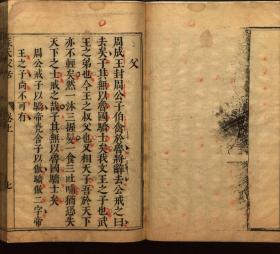 父
周成王封周公子伯禽於魯將辭去公戒之曰
去矣子其無以魯國驕士矣我文王之子也武
王之弟也今王之叔父也又相天子吾於天下
亦不輕矣然一沐三握髮一食三吐哺猶恐失
天下之士吾子其無以魯國驕士矣
周公戒子以驕帝堯戒子以傲驕傲二字帝
王之子尚不可有